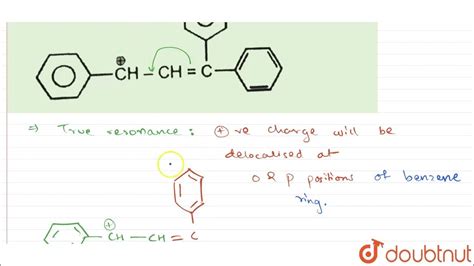 ⊕
CH – CH = C
⇒ True resonance : ⊕ ve charge will be
delocalised at
o & p positions of benzene
ring.
⊕
CH – CH = C
doubtnut